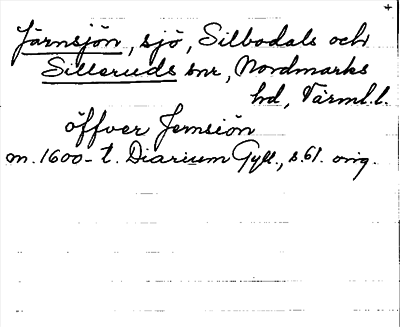 Järnsjön, sjö, Silbodals och
Silleruds snr, Nordmarks
hd, Värml.l.
öffver Jernsiön
m. 1600-t. Diarium Gyll., s.61. orig.